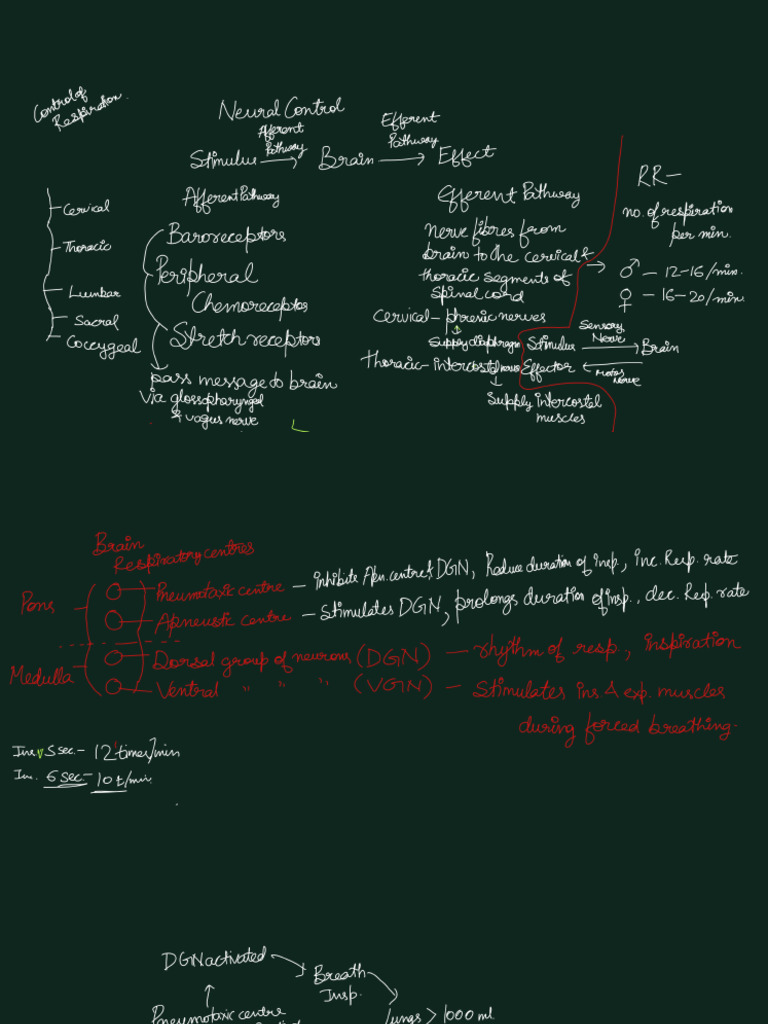 Control of
Respiration.
Neural Control
Afferent
Pathway
Efferent
Pathway
Stimulus → Brain → Effect
Cervical
Thoracic
Lumbar
Sacral
Coccygeal
Afferent Pathway
Baroreceptors
Peripheral
Chemoreceptos
Stretch receptors
pass message to brain
via glossopharyngal
& vagus nerve
Efferent Pathway
nerve fibres from
brain to the cervical &
thoracic segments of
spinal cord
Cervical - phrenic nerves
supply diaphragm
Thoracic - intercostal nerves
Supply intercostal
muscles
RR -
no. of respiration
per min.
♂ - 12-16/min.
♀ - 16-20/min.
Sensory
Nerve
Stimulus → Brain
Effector ← Motor
nerve
Brain
Respiratory centres
Pons
Pneumotaxic centre - inhibits Apn. centre & DGN, Reduce duration of insp., inc. Resp. rate
Apneustic centre - Stimulates DGN, prolongs duration of insp., dec. Resp. rate
Medulla
Dorsal group of neurons (DGN) - rhythm of resp., inspiration
Ventral " " " (VGN) - Stimulates ins & exp. muscles
during forced breathing.
5 sec. - 12 times/min
6 sec - 10 t/min.
DGN activated
Breath
Insp.
Pneumotaxic centre
Lungs > 1000 ml